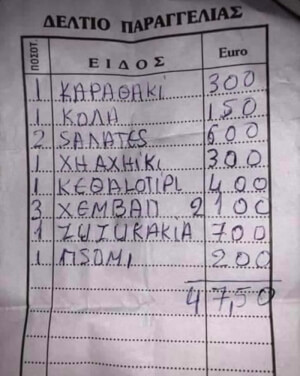 ΔΕΛΤΙΟ ΠΑΡΑΓΓΕΛΙΑΣ
ΠΟΣΟΤ. ΕΙΔΟΣ Euro
1 ΚΑΡΑΘΑΚΙ 300
1 ΚΟΛΑ 150
2 SAΛATES 600
1 ΧΗΑΧΗΙΚΙ 300
1 ΚΕΘΑLΟΤΙΡΙ 400
3 ΧΕΜΒΑΠ 2100
1 ZUZUKAKIA 700
1 ΠSOMI 200
47,50